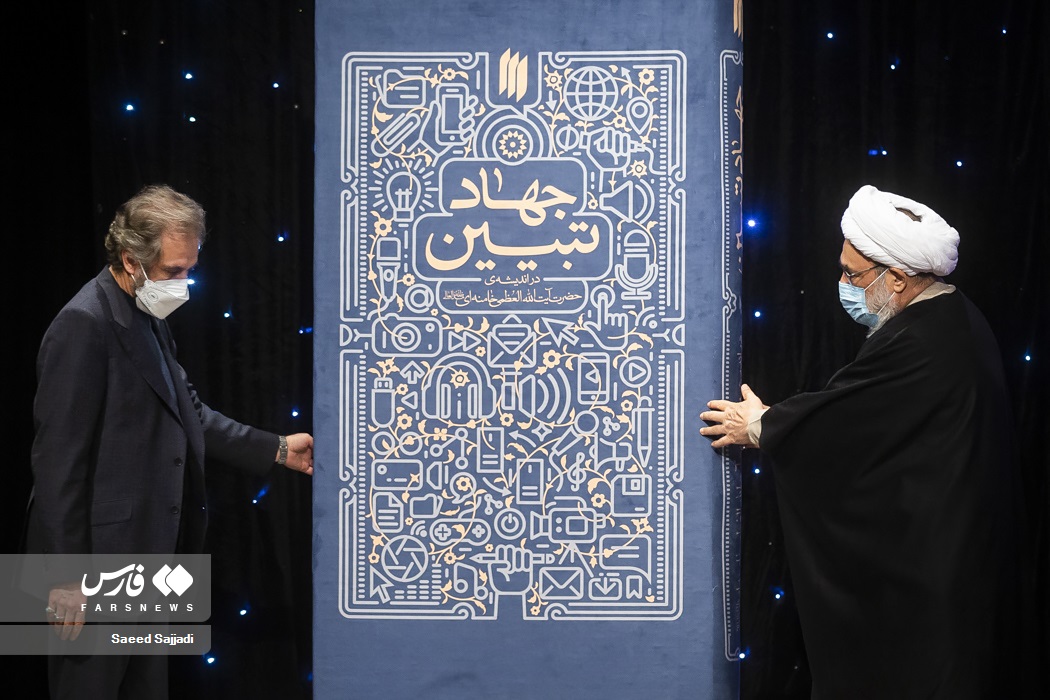 جهاد
تبیین
در اندیشه‌ی
حضرت آیت‌الله العظمی خامنه‌ای
فارس
FARSNEWS
Saeed Sajjadi